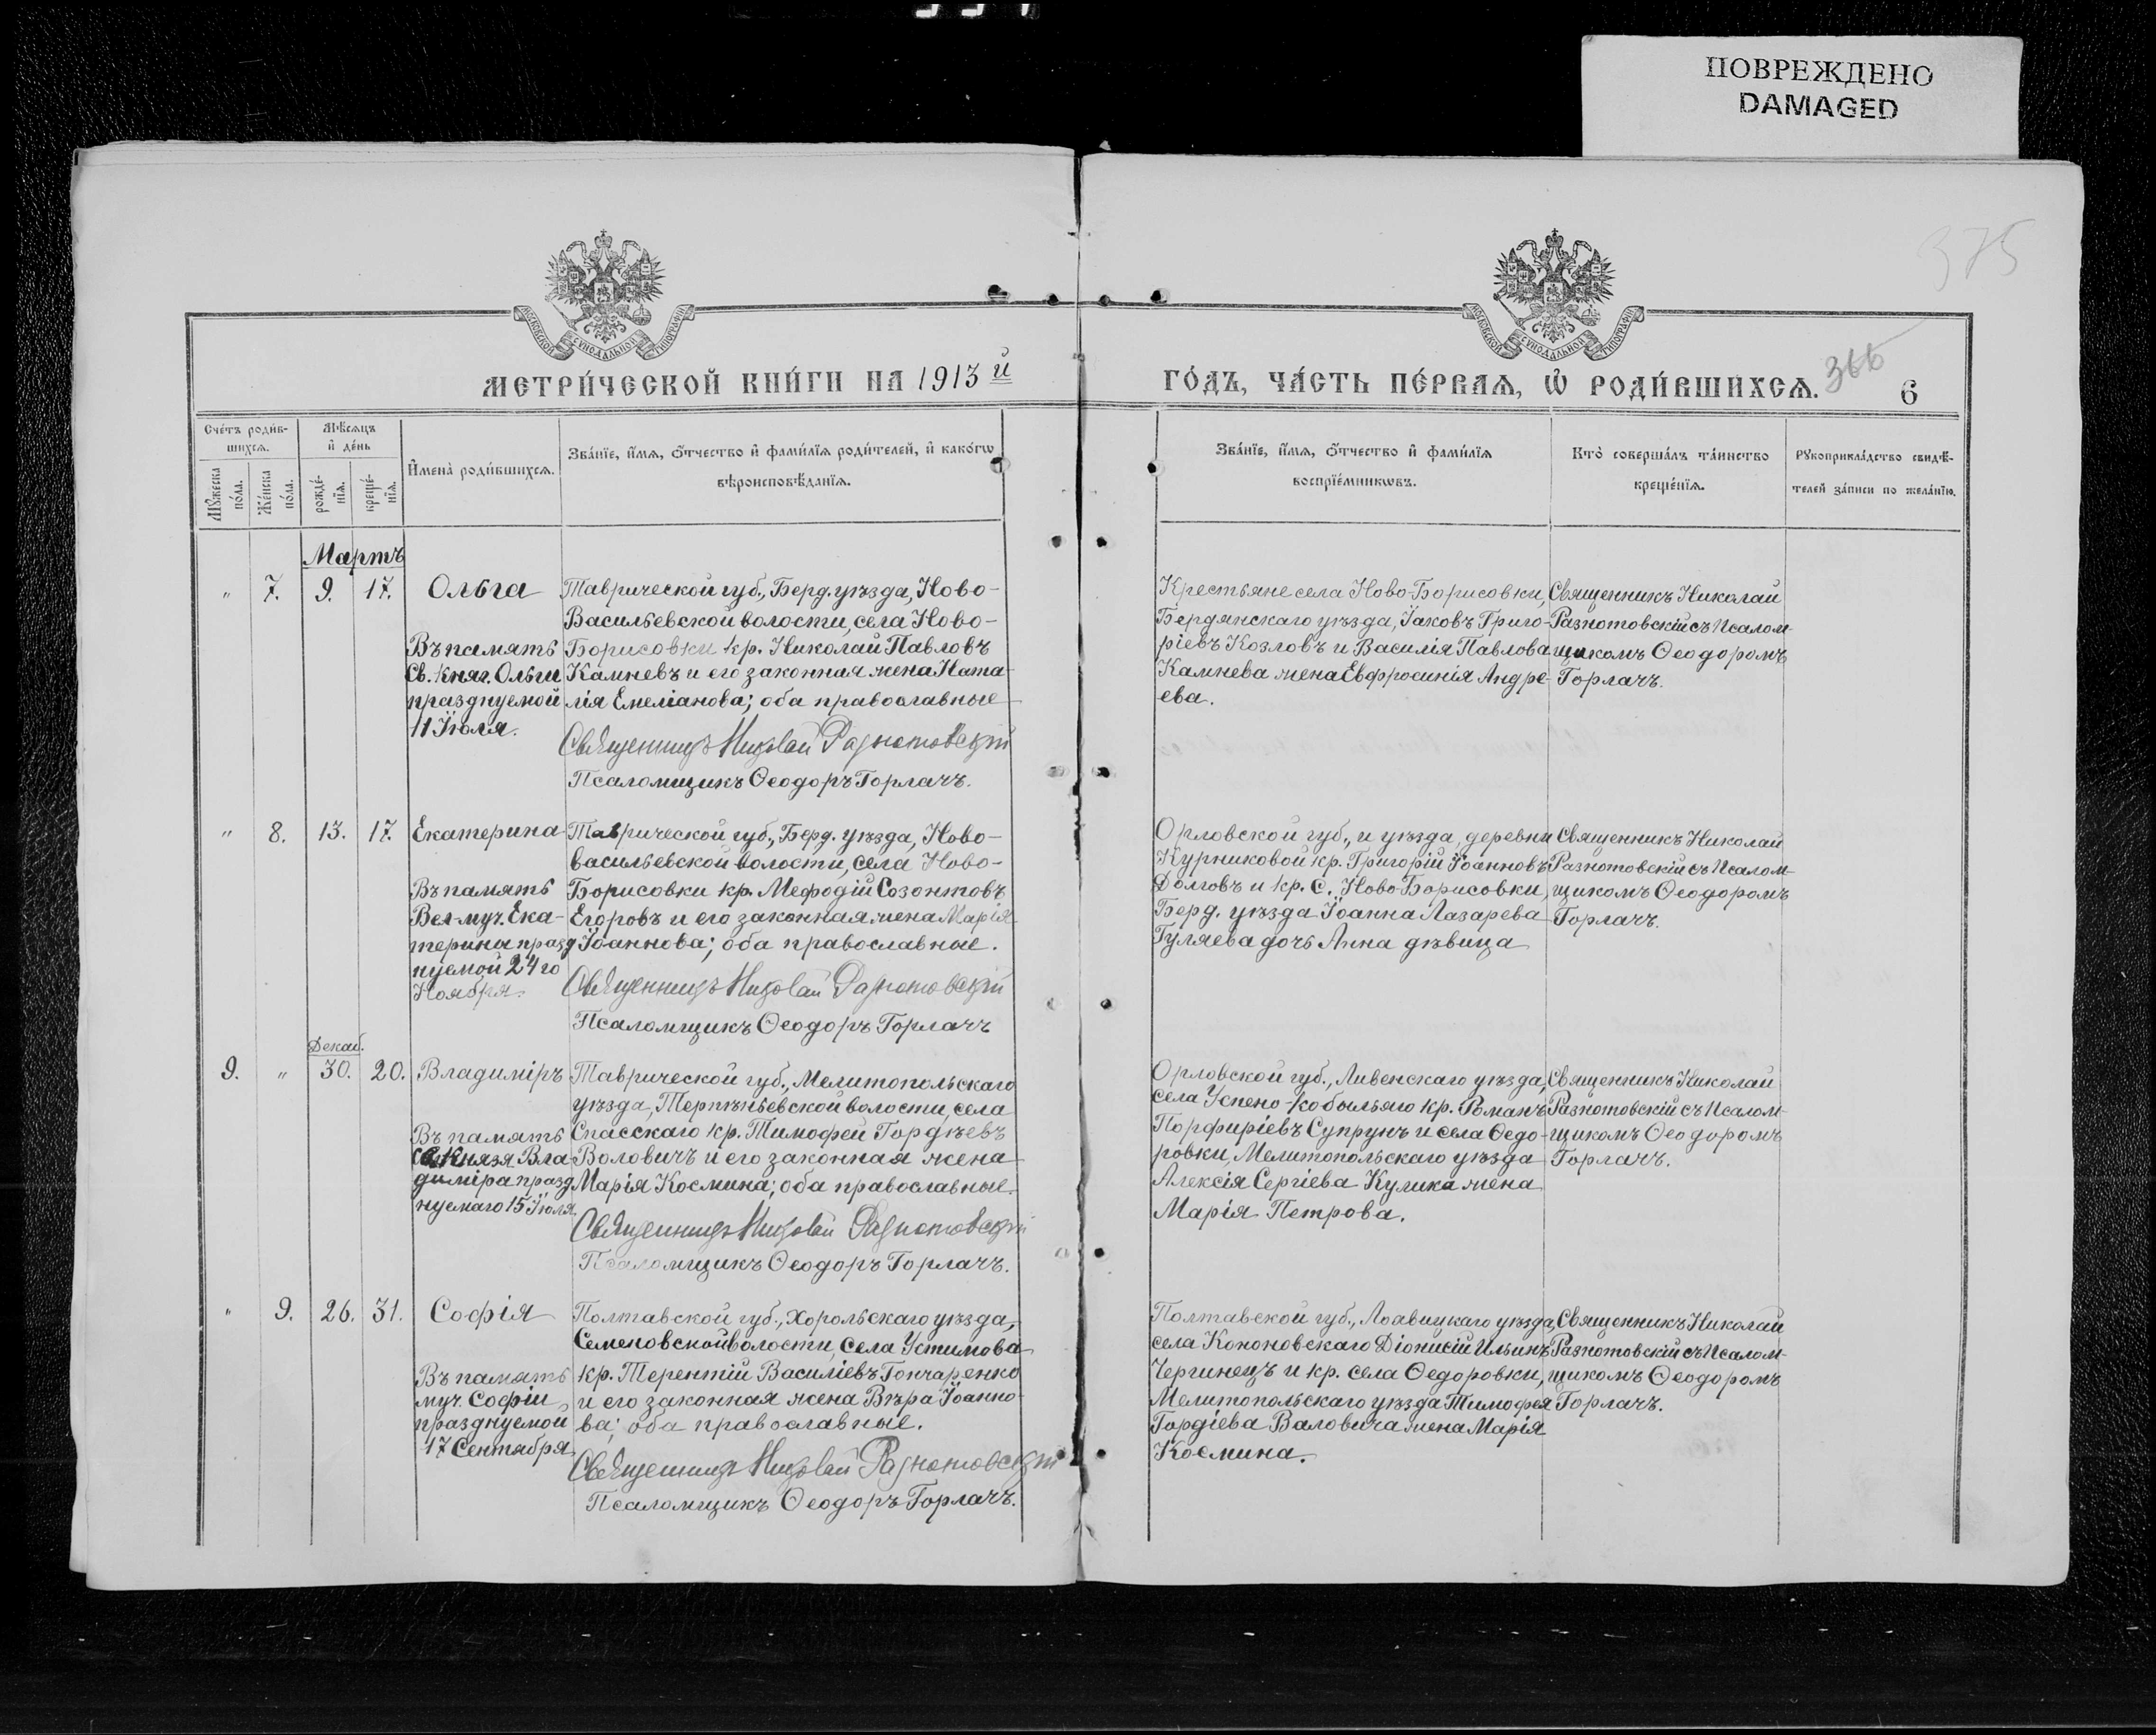 ПОВРЕЖДЕНО
DAMAGED
375
МОСКОВСКОЙ СѴНОДАЛЬНОЙ ТИПОГРАФІИ
МОСКОВСКОЙ СѴНОДАЛЬНОЙ ТИПОГРАФІИ
МЕТРИ́ЧЕСКОЙ КНИ́ГИ НА 1913й
ГО́ДЪ, ЧА́СТЬ ПЕ́РВАѦ, Ѡ҆ РОДИ́ВШИХСѦ.
366
6
Сче́тъ роди́в-
шихсѧ.
Мѣ́сѧцъ
и҆ де́нь
Мꙋ́жеска
по́ла.
Же́нска
по́ла.
рожде́-
нїѧ.
креще́-
нїѧ.
И҆мена̀ роди́вшихсѧ.
Зва́нїе, и҆́мѧ, ѻ҆́тчество и҆ фами́лїѧ роди́телей, и҆ како́гѡ
вѣроисповѣ́данїѧ.
Зва́нїе, и҆́мѧ, ѻ҆́тчество и҆ фами́лїѧ
воспрїе́мникѡвъ.
Кто̀ соверша́лъ та́инство
креще́нїѧ.
Рꙋкоприкла́дство свидѣ́-
телей за́писи по жела́нїю.
Мартъ
" 7. 9. 17. Ольга
Въ память
Св. Княг. Ольги
празднуемой
11 Іюля.
Таврической губ., Берд. уѣзда, Ново-
Васильевской волости, села Ново-
Борисовки кр. Николай Павловъ
Камневъ и его законная жена Ната-
лія Емеліанова; оба православные
Священникъ Николай Разнотовскій
Псаломщикъ Ѳеодоръ Горлачъ.
Крестьяне села Ново-Борисовки,
Бердянскаго уѣзда, Іаковъ Григо-
ріевъ Козловъ и Василія Павлова
Камнева жена Евфросинія Андре-
ева.
Священникъ Николай
Разнотовскій съ Псалом-
щикомъ Ѳеодоромъ
Горлачъ.
" 8. 13. 17. Екатерина
Въ память
Вел-муч. Ека-
терины празд
нуемой 24 го
Ноября.
Таврической губ., Берд. уѣзда, Ново-
васильевской волости, села Ново-
Борисовки кр. Мефодій Созонтовъ
Егоровъ и его законная жена Марія
Іоаннова; оба православные.
Священникъ Николай Разнотовскій
Псаломщикъ Ѳеодоръ Горлачъ
Орловской губ., и уѣзда, деревни
Курниковой кр. Григорій Іоанновъ
Долговъ и кр. с. Ново-Борисовки,
Берд. уѣзда Іоанна Лазарева
Гуляева дочь Анна дѣвица
Священникъ Николай
Разнотовскій съ Псалом-
щикомъ Ѳеодоромъ
Горлачъ.
Декаб.
9. " 30. 20. Владиміръ
Въ память
Св. Князя Вла-
диміра празд
нуемаго 15 Іюля.
Таврической губ., Мелитопольскаго
уѣзда, Терпѣньевской волости, села
Спасскаго кр. Тимофей Гордѣевъ
Воловичъ и его законная жена
Марія Космина; оба православные.
Священникъ Николай Разнотовскій
Псаломщикъ Ѳеодоръ Горлачъ.
Орловской губ., Ливенскаго уѣзда,
села Успено-Кобыльяго кр. Романъ
Порфиріевъ Супрунъ и села Ѳедо-
ровки, Мелитопольскаго уѣзда
Алексія Сергіева Кулика жена
Марія Петрова.
Священникъ Николай
Разнотовскій съ Псалом-
щикомъ Ѳеодоромъ
Горлачъ.
" 9. 26. 31. Софія
Въ память
муч. Софіи,
празднуемой
17 Сентября
Полтавской губ., Хорольскаго уѣзда,
Семеновской волости, села Устимова
кр. Терентій Василіевъ Гончаренко
и его законная жена Вѣра Іоанно-
ва; оба православные.
Священникъ Николай Разнотовскій
Псаломщикъ Ѳеодоръ Горлачъ.
Полтавской губ., Лохвицкаго уѣзда,
села Кононовскаго Діонисій Ильинъ
Чергинецъ и кр. села Ѳедоровки,
Мелитопольскаго уѣзда Тимофея
Гордіева Валовича жена Марія
Космина.
Священникъ Николай
Разнотовскій съ Псалом-
щикомъ Ѳеодоромъ
Горлачъ.